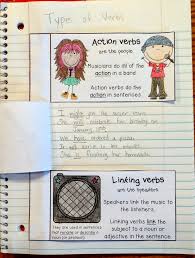 Types of Verbs
Action verbs
are the people
Musicians do all of the
action in a band
Action verbs do the
action in sentences
I
She will celebrate her birthday on
January
We have ordered a pizza.
It will
She is finishing her homework.
Linking verbs
are the speakers
Speakers link the music to
the listeners.
Linking verbs link the
subject to a noun or
adjective in the sentence.
They are used in sentences
that rename or describe a